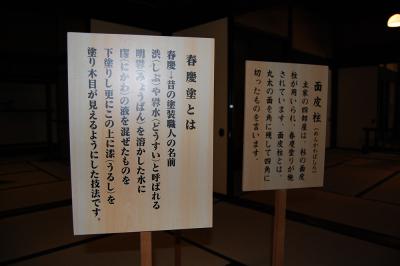 春慶塗とは
春慶→昔の塗装職人の名前
渋(しぶ)や礬水(どうすい)と呼ばれる
明礬(みょうばん)を溶かした水に
膠(にかわ)の液を混ぜたものを
下塗りし更にこの上に漆(うるし)を
塗り木目が見えるようにした技法です。
面皮柱(めんかわばしら)
主家の四部屋は、杉の面皮
柱が用いられ、春慶塗りが施
されています。面皮柱とは、
丸太の面を角に残して四角に
切ったものを言います。